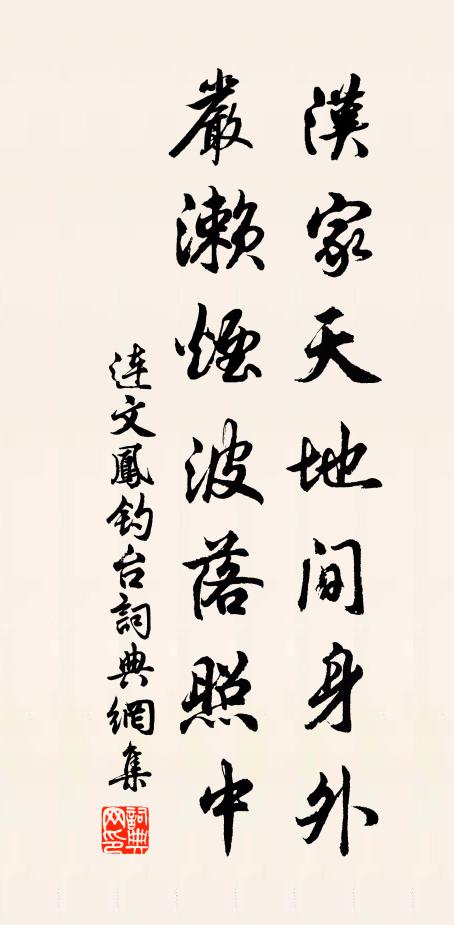 漢家天地間身外
嚴瀨煙波落照中
連文鳳釣台詞典網集
詞典网印